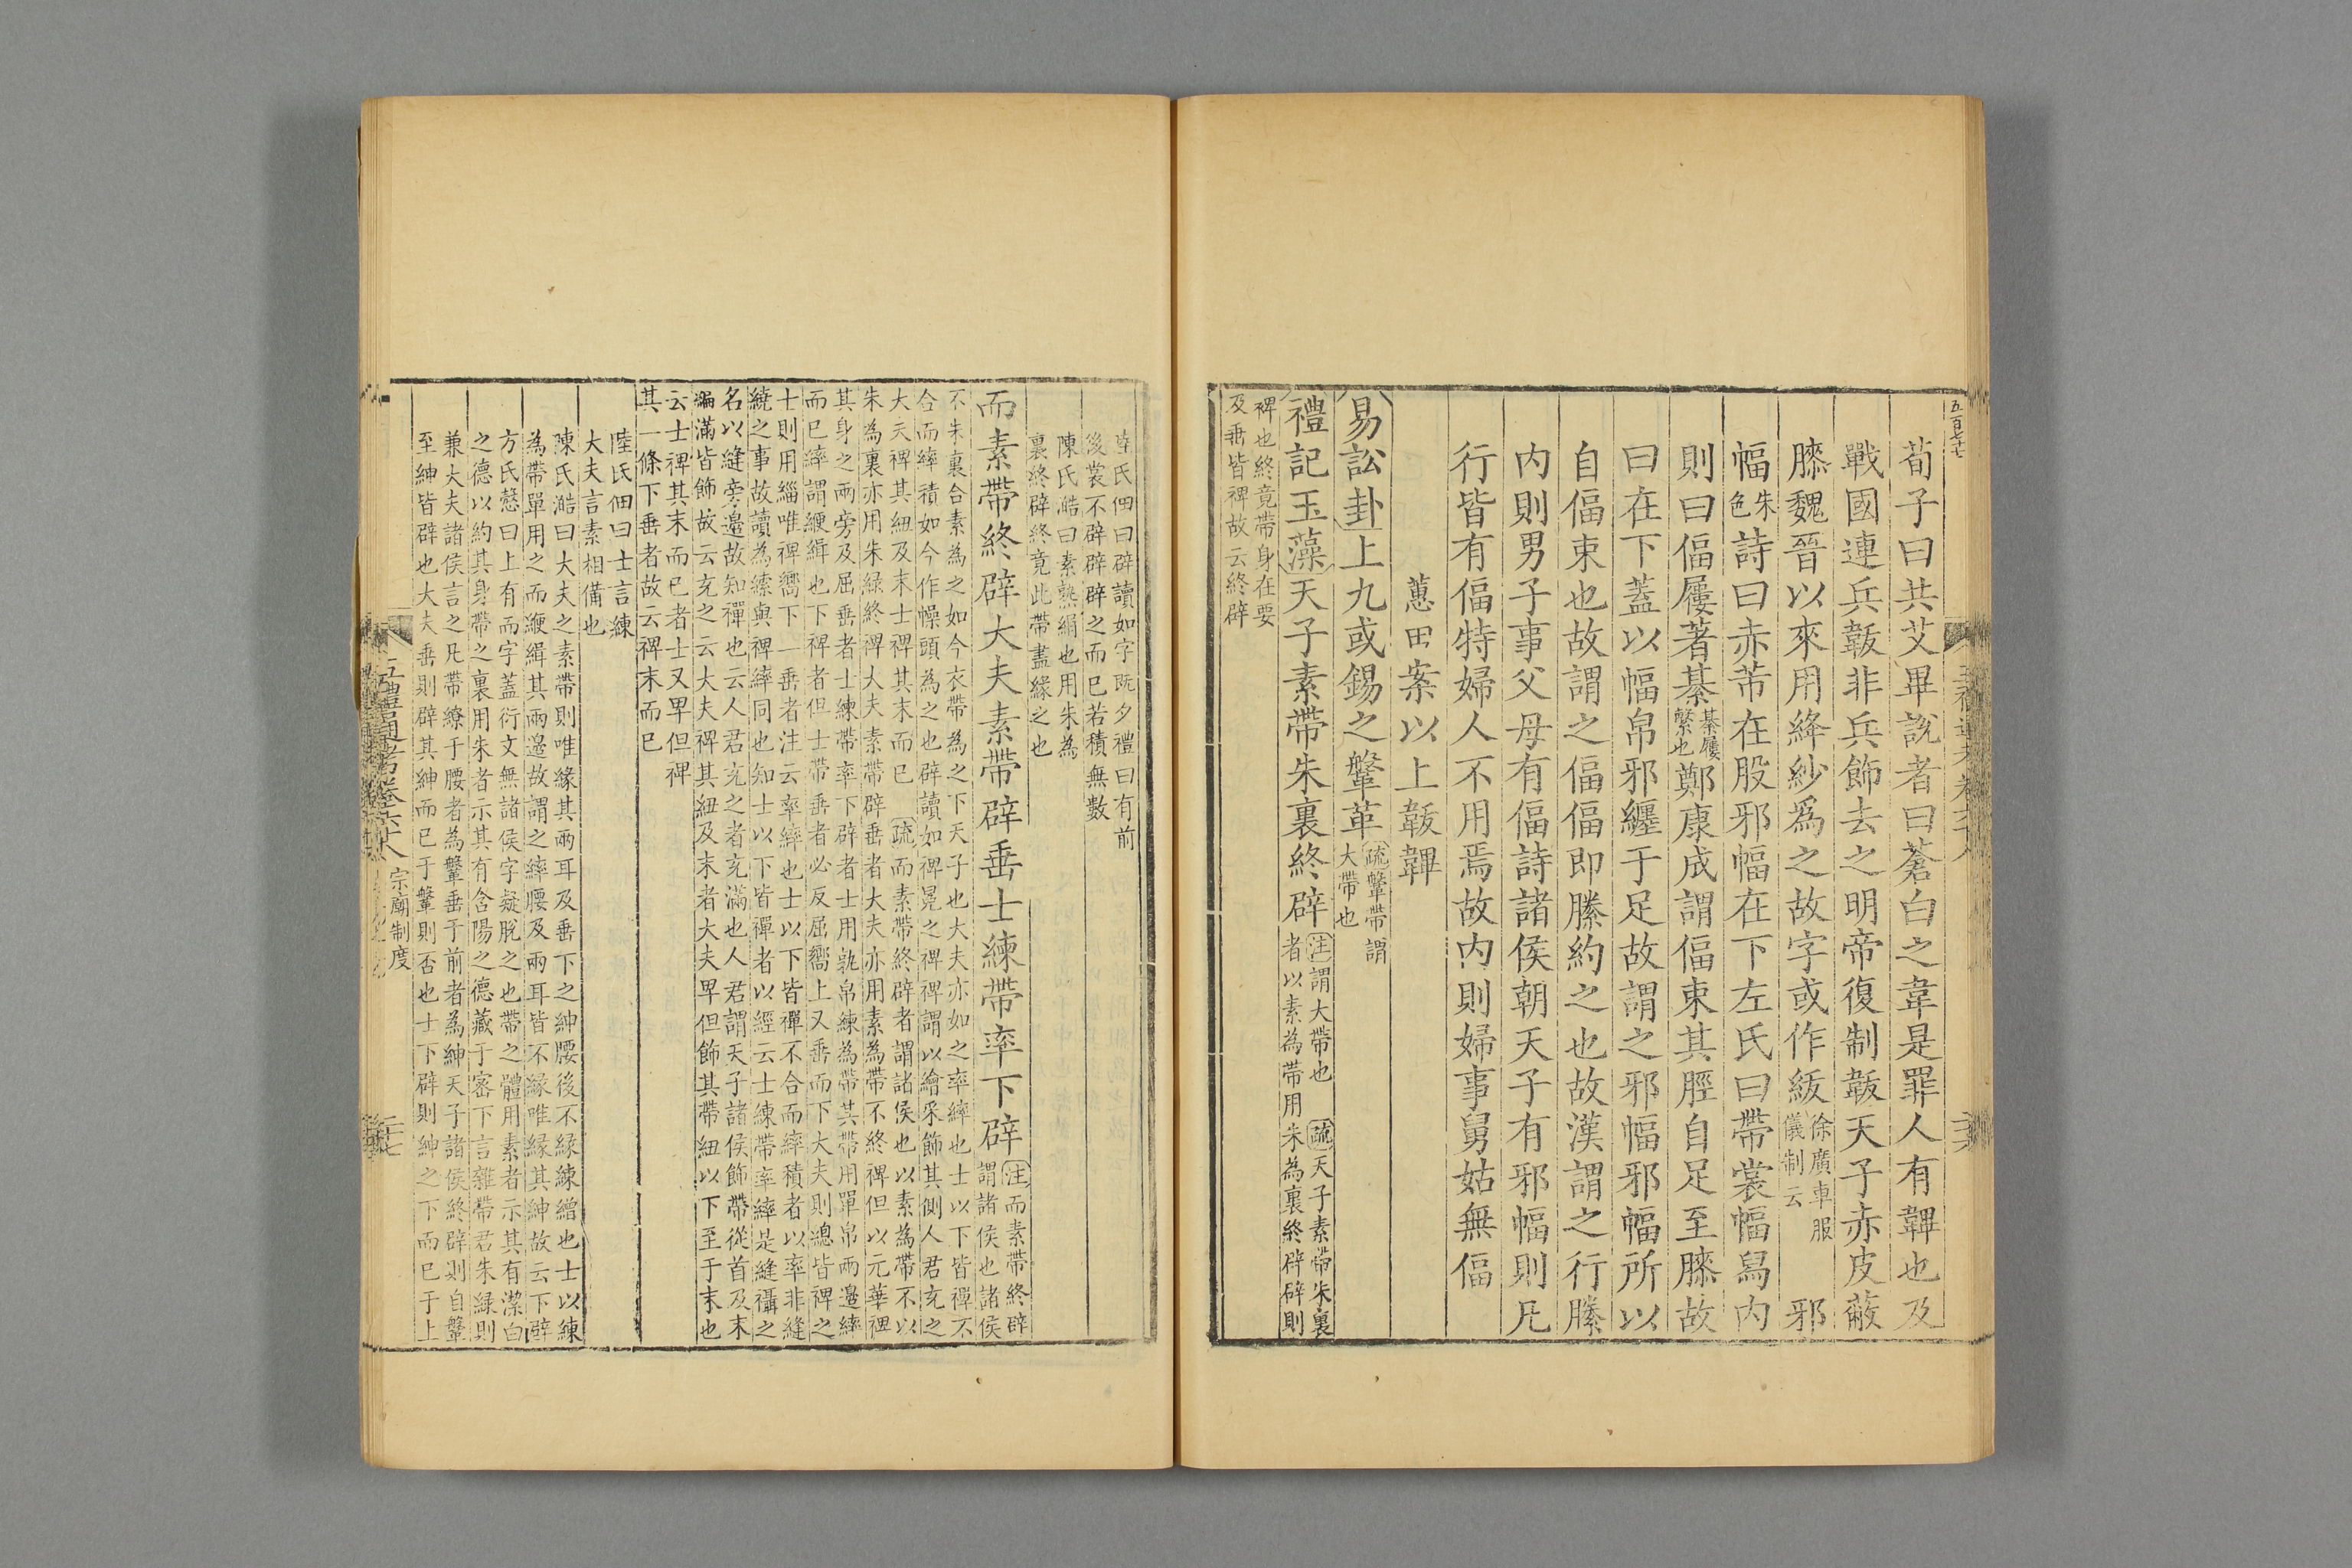 五百七十七
荀子曰共艾畢說者曰蒼白之韋是罪人有韠也及
戰國連兵韍非兵飾去之明帝復制韍天子赤皮蔽
膝魏晉以來用絳紗爲之故字或作紱徐廣車服儀制云邪
幅朱色詩曰赤芾在股邪幅在下左氏曰帶裳幅舄内
則曰偪屨著綦綦屨繫也鄭康成謂偪束其脛自足至膝故
曰在下蓋以幅帛邪纏于足故謂之邪幅邪幅所以
自偪束也故謂之偪偪即縢約之也故漢謂之行縢
内則男子事父母有偪詩諸侯朝天子有邪幅則凡
行皆有偪特婦人不用焉故内則婦事舅姑無偪
蕙田案以上韍韠
易訟卦上九或錫之鞶革疏鞶帶謂大帶也
禮記玉藻天子素帶朱裏終辟注謂大帶也 疏天子素帶朱裏
者以素為帶用朱為裏終辟辟則
裨也終竟帶身在要
及垂皆裨故云終辟
陸氏佃曰辟讀如字既夕禮曰有前
後裳不辟辟辟之而已若積無數
陳氏澔曰素熟絹也用朱為
裏終辟終竟此帶盡緣之也
而素帶終辟大夫素帶辟垂士練帶率下辟注而素帶終辟
謂諸侯也諸侯
不朱裏合素為之如今衣帶為之下天子也大夫亦如之率繂也士以下皆禪不
合而繂積如今作幧頭為之也辟讀如裨冕之裨裨謂以繒采飾其側人君充之
大夫裨其紐及末士裨其末而已 疏而素帶終辟者謂諸侯也以素為帶不以
朱為裏亦用朱緑終裨大夫素帶辟垂者大夫亦用素為帶不終裨但以元華裨
其身之兩旁及屈垂者士練帶率下辟者士用孰帛練為帶其帶用單帛兩邊繂
而已繂謂緶緝也下裨者但士帶垂者必反屈嚮上又垂而下大夫則總皆裨之
士則用緇唯裨嚮下一垂者注云率繂也士以下皆禪不合而繂積者以率非縫
繞之事故讀為繂與裨繂同也知士以下皆禪者以經云士練帶率繂是縫襵之
名以縫旁邊故知禪也云人君充之者充滿也人君謂天子諸侯飾帶從首及末
徧滿皆飾故云充之云大夫裨其紐及末者大夫卑但飾其帶紐以下至于末也
云士裨其末而已者士又卑但裨
其一條下垂者故云裨末而已
陸氏佃曰士言練
大夫言素相備也
陳氏澔曰大夫之素帶則唯緣其兩耳及垂下之紳腰後不緣練繒也士以練
為帶單用之而緶緝其兩邊故謂之繂腰及兩耳皆不緣唯緣其紳故云下辟
方氏慤曰上有而字蓋衍文無諸侯字疑脫之也帶之體用素者示其有潔白
之德以約其身帶之裏用朱者示其有含陽之德藏于密下言雜帶君朱緑則
兼大夫諸侯言之凡帶繚于腰者為鞶垂于前者為紳天子諸侯終辟則自鞶
至紳皆辟也大夫垂則辟其紳而已于鞶則否也士下辟則紳之下而已于上
五禮通考卷六十八 宗廟制度
二十七